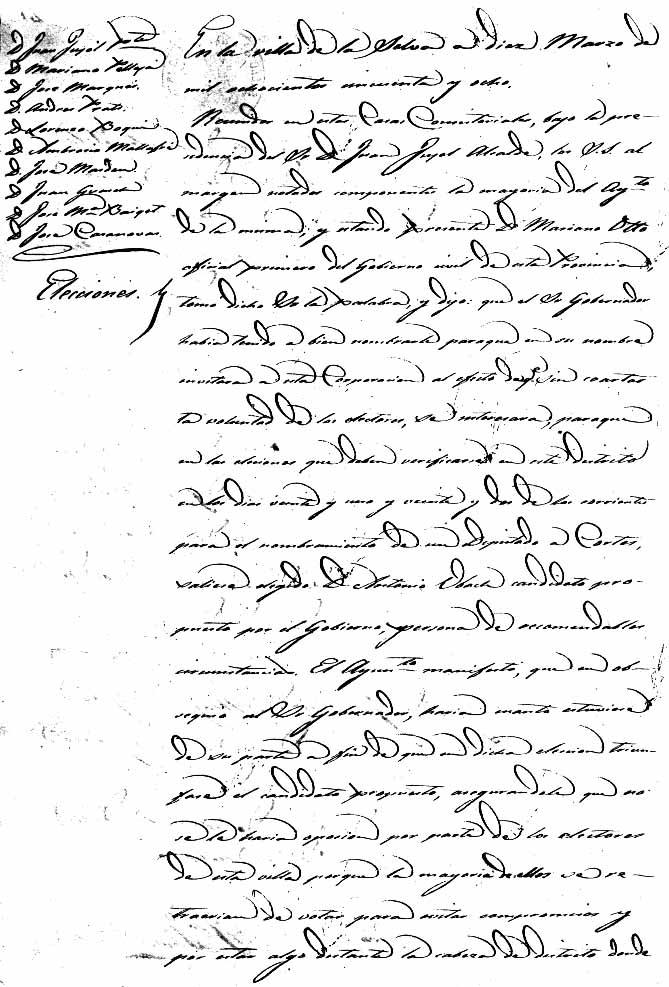 D. Juan Pujol
D. Mariano
D. Jose Marqués.
D. Andres Prats.
D. Lorenzo
D. Antonio
D. José
D. Juan
D. Jose Ma. Puiget
D. José Casanovas.
Elecciones.
En la villa de la Selva a diez Marzo de
mil ochocientos cincuenta y ocho.
Reunidos en estas Casas Consistoriales, bajo la pre-
sidencia del Sr. D. Juan Pujol Alcalde, los S.S. al
margen notados componentes la mayoria del Ayto.
de la misma; y estando presente D. Mariano Otto
oficial primero del Gobierno civil de esta Provincia,
tomo dicho Sr. la palabra, y dijo: que el Sr. Gobernador
habia tenido a bien nombrarle paraque en su nombre
invitara a esta Corporacion al efecto de q.e sin coartar
la voluntad de los electores, se interesara, paraque
en las elecciones que deben verificarse en este distrito
en los dias veinte y uno y veinte y dos de los corrientes
para el nombramiento de un Diputado a Cortes,
saliera elegido D. Antonio candidato pro-
puesto por el Gobierno, persona de recomendables
circunstancias. El Ayunto. manifestó, que en ob-
sequio al Sr. Gobernador, haria cuanto estuviere
de su parte a fin de que en dicha eleccion triun-
fase el candidato propuesto, asegurandole que no
se le haria oposicion por parte de los electores
de esta villa porque la mayoria de ellos se re-
traerian de votar para evitar compromisos y
por estar algo distante la cabeza de distrito donde